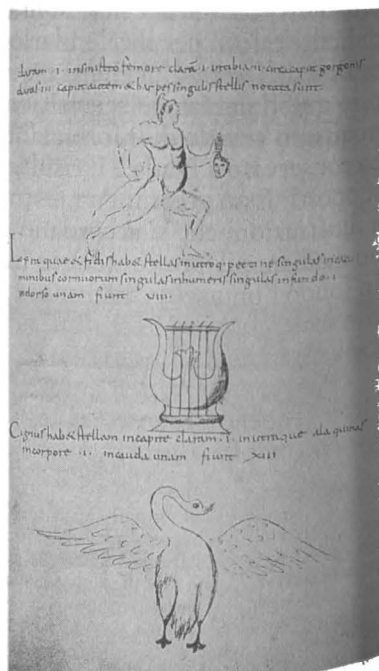 claram · i · insinistro femore clarā · i · intibiam · circacaput gorgonis
duas in caput autem & harpes singulis stellis notata sunt
quae & fidis hab& stellas inutroq; pectine singulas
minibus cornuorum singulas inhumeris singulas infundo · i
indorso unam fiunt VIIII·
Cignus hab& stellam incapite claram · i · inutraque ala quinas
incorpore · i · incauda unam fiunt XIII